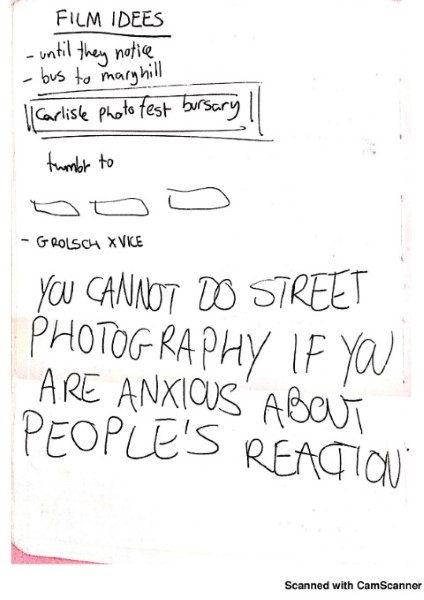 FILM IDEES
- until they notice
- bus to maryhill
Carlisle photo fest bursary
tumblr to
- GROLSCH X VICE
YOU CANNOT DO STREET
PHOTOGRAPHY IF YOU
ARE ANXIOUS ABOUT
PEOPLE'S REACTION
Scanned with CamScanner